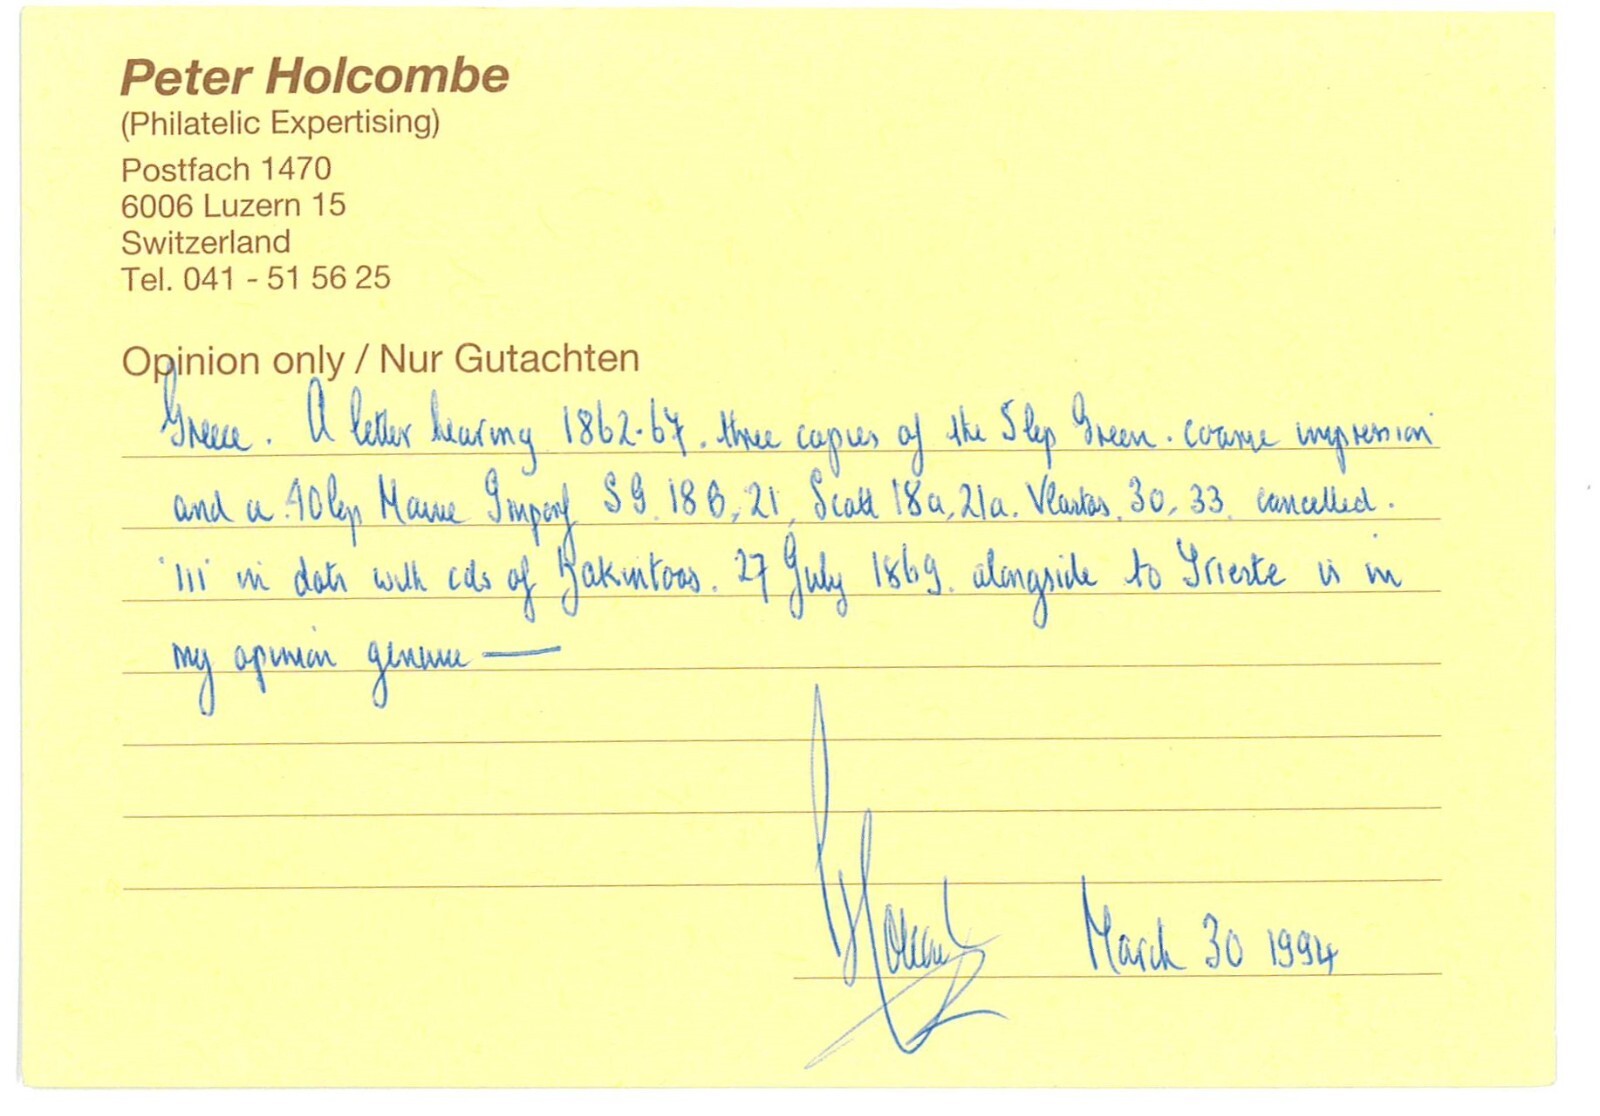 Peter Holcombe
(Philatelic Expertising)
Postfach 1470
6006 Luzern 15
Switzerland
Tel. 041 - 51 56 25
Opinion only / Nur Gutachten
Greece. A letter bearing 1862-67. three copies of the 5 lep Green. coarse impression
and a 40 lep Mauve Imperf SG 18B, 21, Scott 18a, 21a. Vlastos. 30, 33. cancelled.
'111' in dots with cds of Zakintoos. 27 July 1869. alongside to Trieste is in
my opinion genuine —
P Holcombe March 30 1994